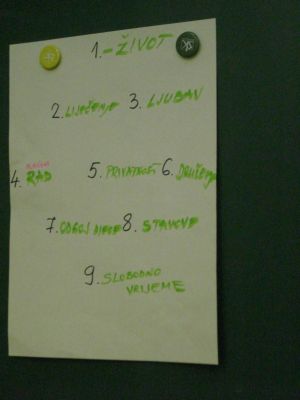 1.-ŽIVOT
2. LIJEČENJE 3. LJUBAV
4. RAD
5. PRIVATNOST 6. DRUŽENJE
7. ODGOJ DJECE 8. STAVOVE
9. SLOBODNO
VRIJEME